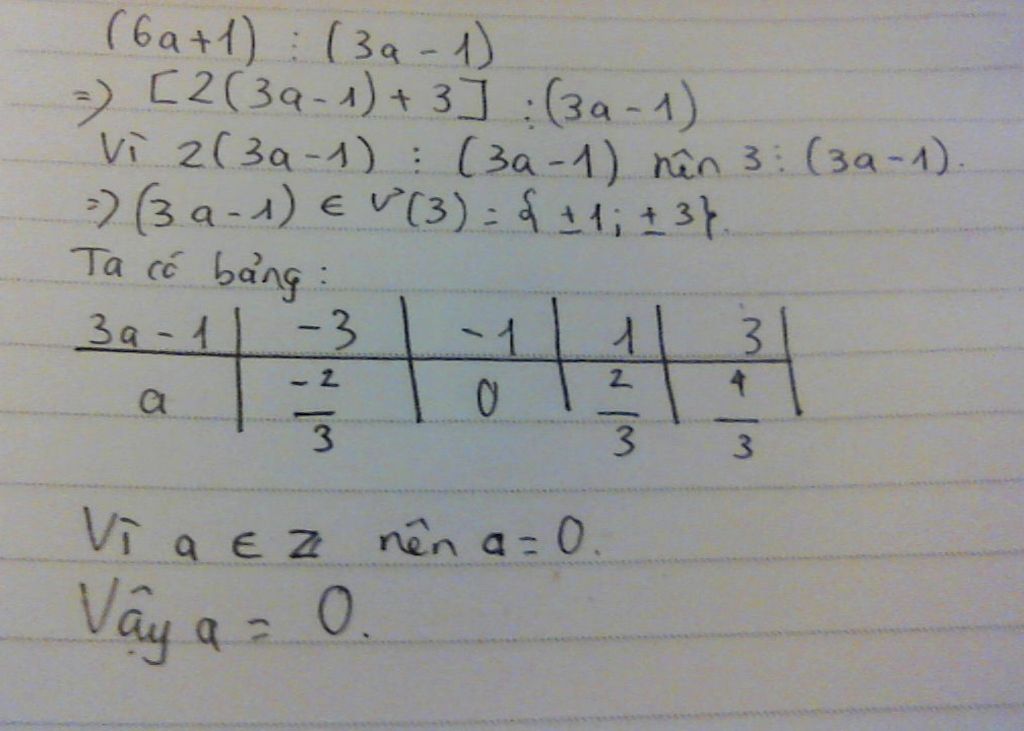 (6a+1) ⋮ (3a-1)
=> [2(3a-1)+3] ⋮ (3a-1)
Vì 2(3a-1) ⋮ (3a-1) nên 3 ⋮ (3a-1).
=> (3a-1) ∈ Ư(3) = {±1; ±3}.
Ta có bảng:
3a-1 | -3 | -1 | 1 | 3 |
a | -2/3 | 0 | 2/3 | 4/3 |
Vì a ∈ Z nên a = 0.
Vậy a = 0.